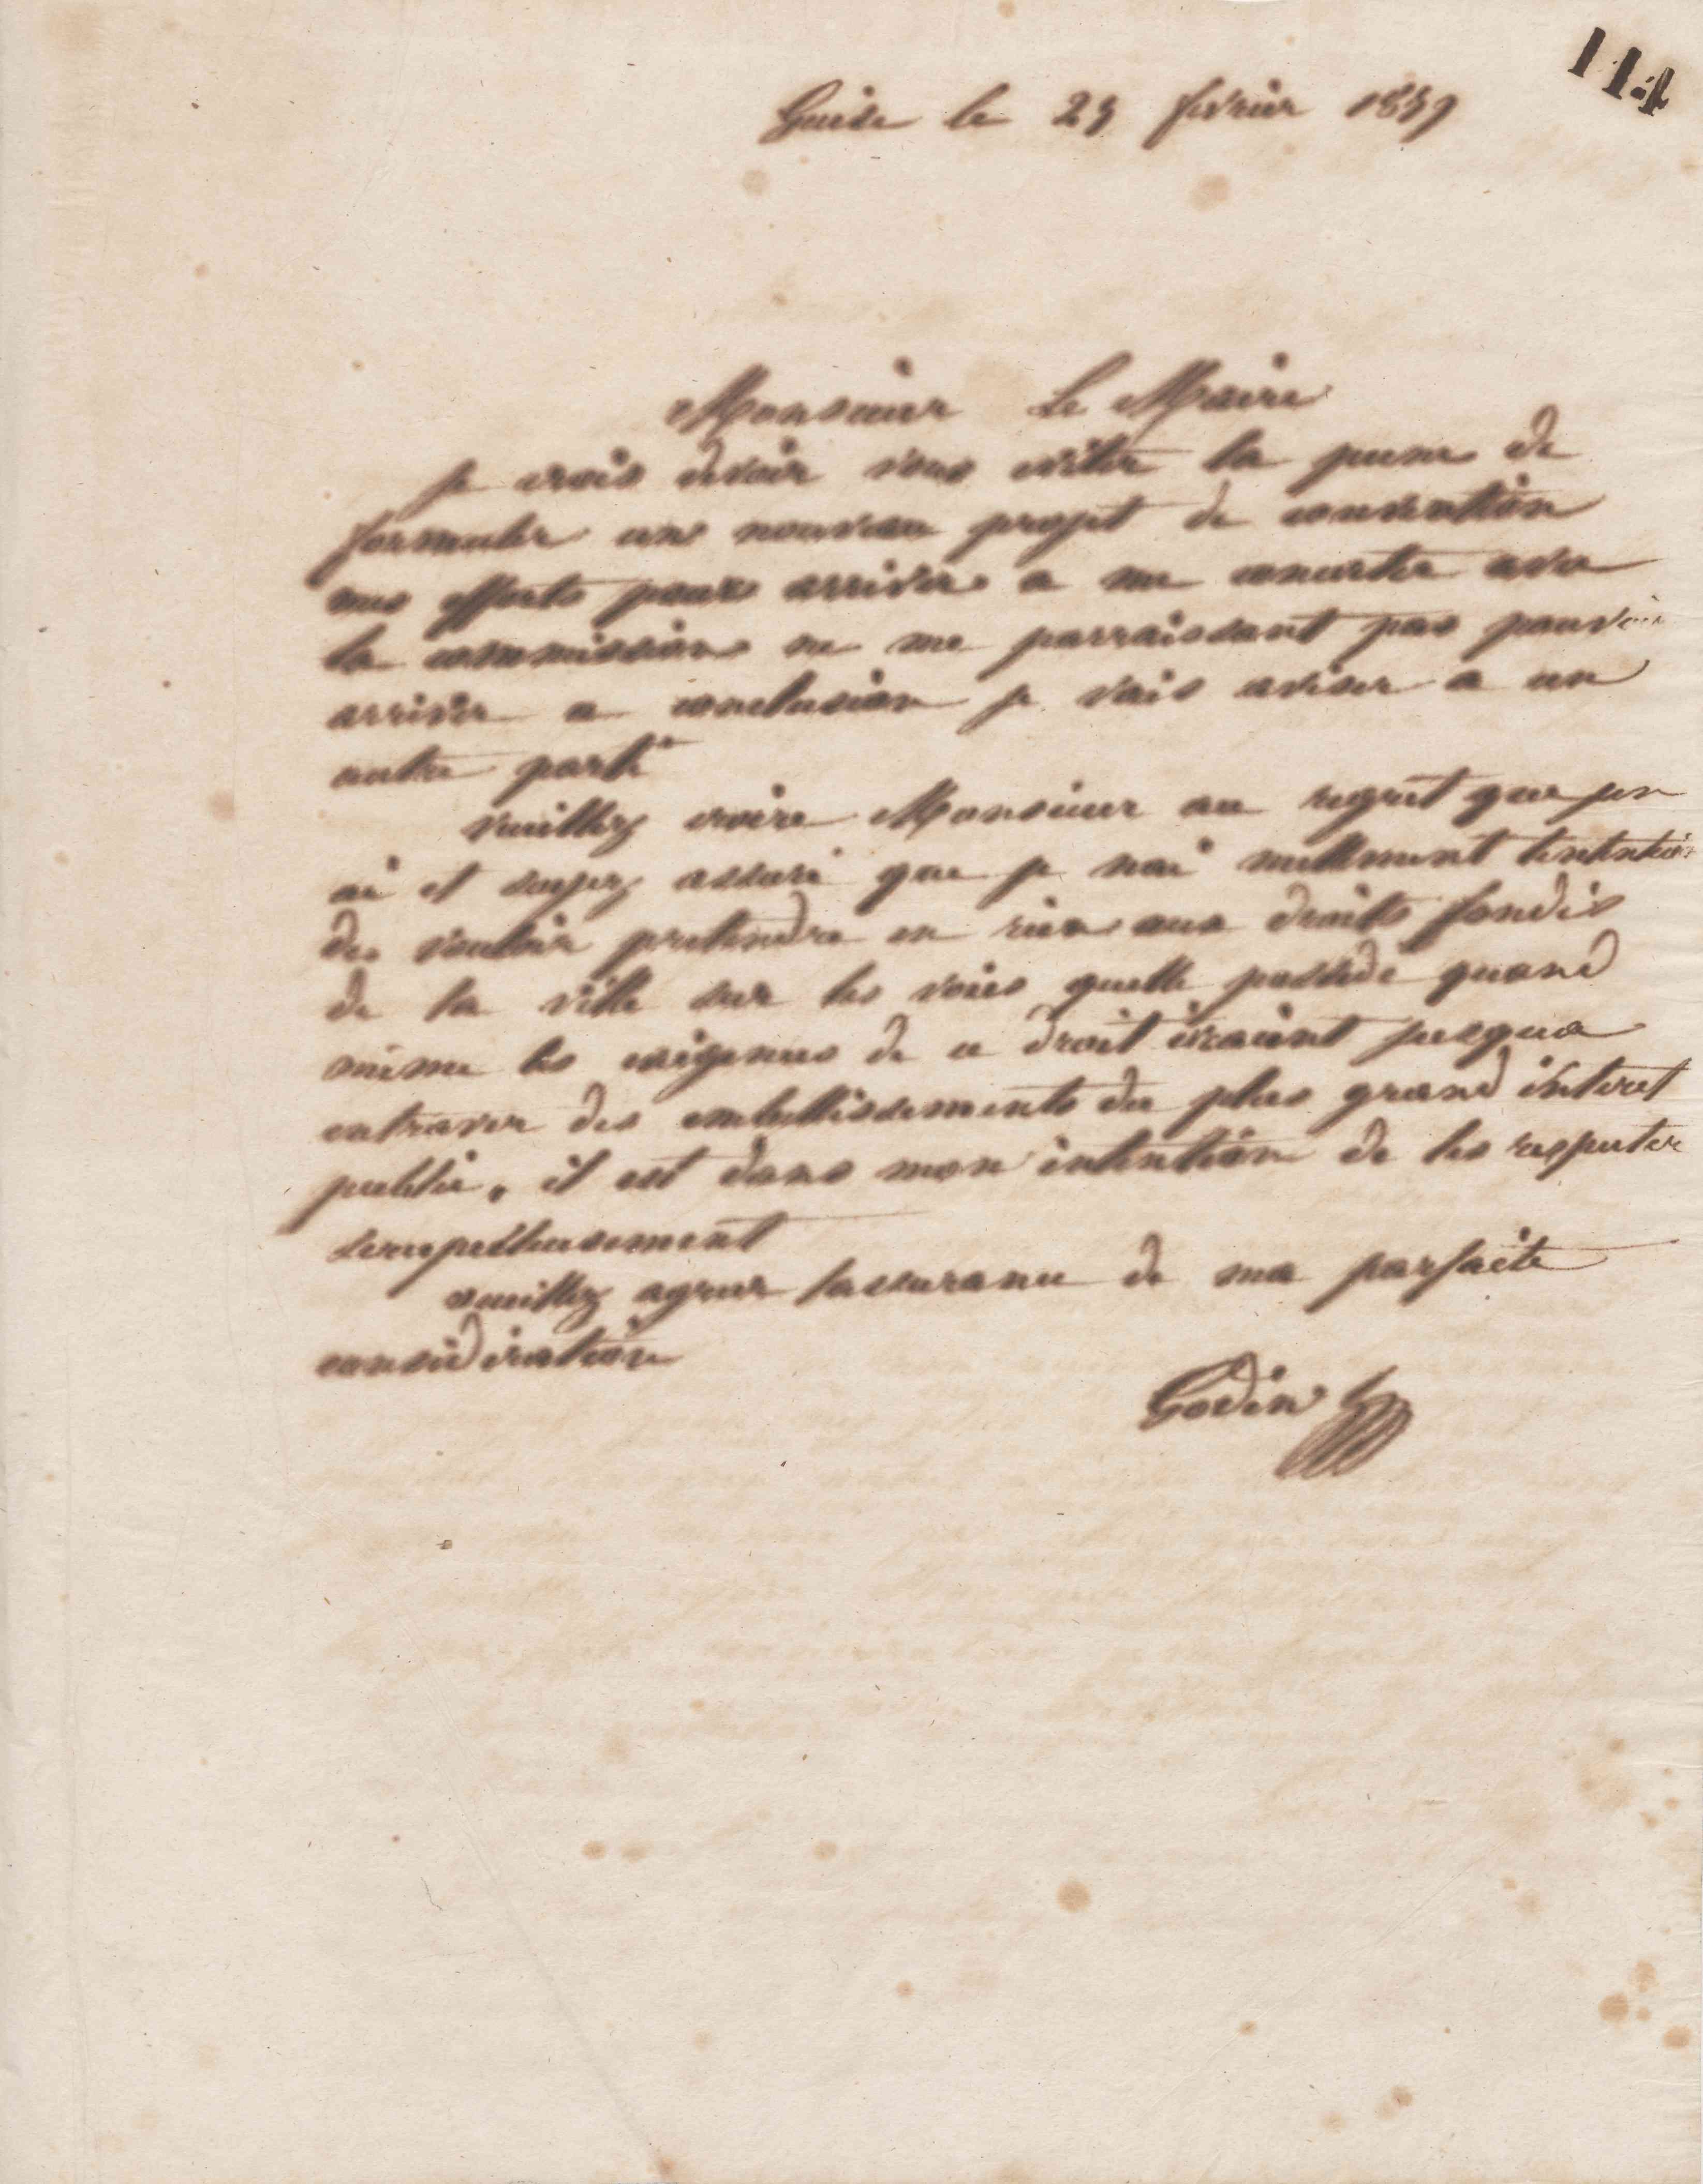 114
Guise le 25 fevrier 1859
Monsieur Le Maire
je crois devoir vous eviter la peine de
formuler un nouveau projet de convention
mes efforts pour arriver a me concerter avec
la commission ne me parraissant pas pouvoir
arriver a conclusion je vais aviser a un
autre parti
veuillez croire Monsieur au regret que jen
ai et soyez assuré que je nai nullement lintention
de vouloir pretendre en rien aux droits fondés
de la ville sur les voies quelle possede quand
même les exigences de ce droit iraient jusqua
entraver des embellissements du plus grand interet
public, il est dans mon intention de les respecter
scrupuleusement
veuillez agreer lassurance de ma parfaite
considération
Godin